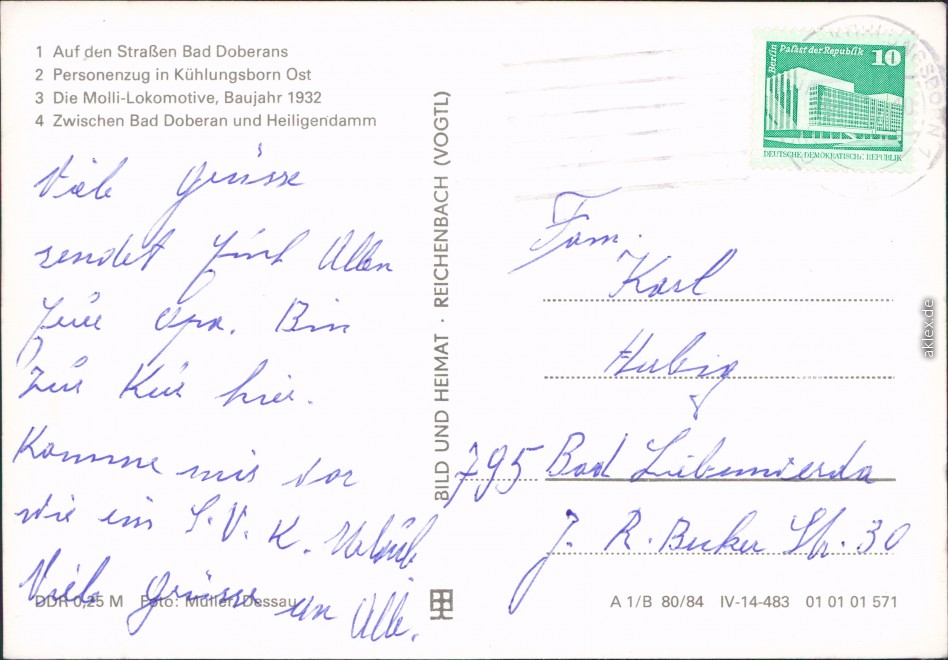 1 Auf den Straßen Bad Doberans
2 Personenzug in Kühlungsborn Ost
3 Die Molli-Lokomotive, Baujahr 1932
4 Zwischen Bad Doberan und Heiligendamm
Viele Grüsse
sendet Euch Allen
Euer Opa. Bin
Zur Kur hier.
Komme mir vor
wie im S.V.K. Urlaub
Viele Grüsse an Alle.
DDR 0,25 M Foto: Müller, Dessau
BILD UND HEIMAT · REICHENBACH (VOGTL)
Berlin Palast der Republik 10
DEUTSCHE DEMOKRATISCHE REPUBLIK
Fam.
Karl
Hubig
795 Bad Liebenwerda
J. R. Becker Str. 30
A 1/B 80/84 IV-14-483 01 01 01 571
aklex.de